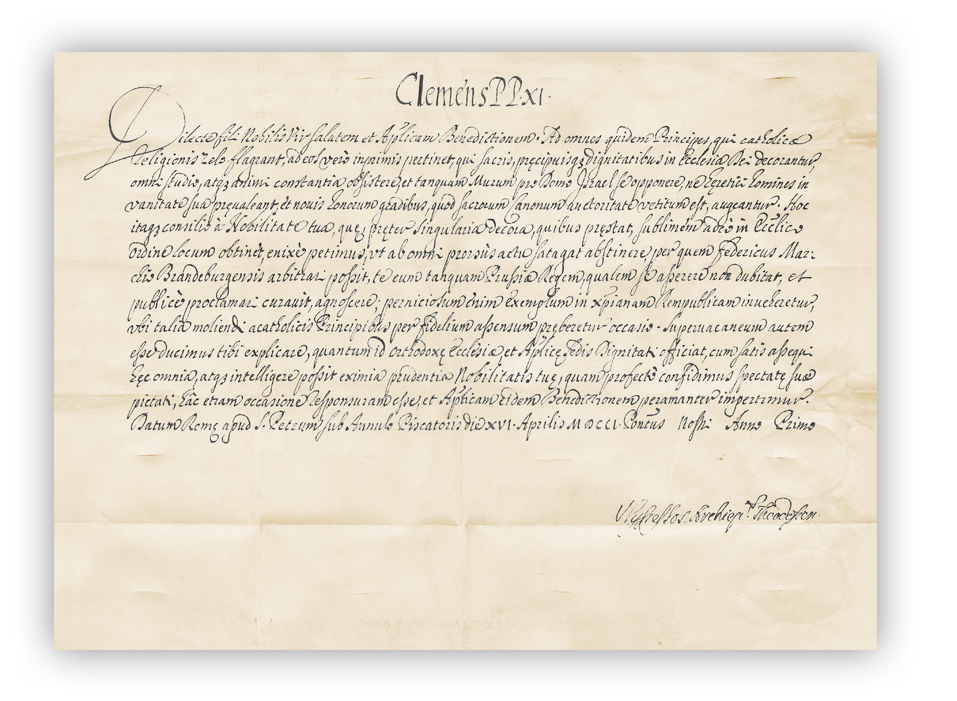 Clemens PP. XI.
Dilecte fili Nobilis Vir salutem et Aplicam Benedictionem. Ad omnes quidem Principes, qui catholicæ
Religionis zelo flagrant, ad eos verò inprimis pertinet, qui sacris, præcipuisq; dignitatibus in Ecclesia Dei decorantur,
omni studio, atq; animi constantia obsistere, et tanquam Murum pro Domo Israel se opponere, ne hęretici homines in
vanitate sua prevaleant, et novis honorum gradibus, quod sacrorum Canonum auctoritate vetitum est, augeantur. Hoc
itaq; consiliô à Nobilitate tua, quę pręter singularia decora, quibus prestat, sublimem adeò in Ecclico
ordine locum obtinet, enixè petimus, vt ab omni prorsus actu satagat abstinere, per quem Federicus Mar:
chio Brandeburgensis arbitrari possit, te eum tanquam Prussiæ Regem, qualem se asserere non dubitat, et
publicè proclamari curavit, agnoscere; perniciosum enim exemplum in xpianam Rempublicam inveheretur,
vbi talia moliendi acatholicis Principibus per fidelium assensum pręberetur occasio. Supervacaneum autem
esse ducimus tibi explicare, quantum id orthodoxę Ecclesiæ, et Aplicę Sedis Dignitati officiat, cum satis assequi
hęc omnia, atq; intelligere possit eximia prudentia Nobilitatis tuę, quam profectò confidimus spectatę suæ
pietati, hâc etiam occasione responsuram esse, et Aplicam eidem Benedictionem peramanter impertimur.
Datum Romę apud S. Petrum sub Annulo Piscatoris die XVI. Aprilis MDCCI. Pontus Nostri Anno Primo